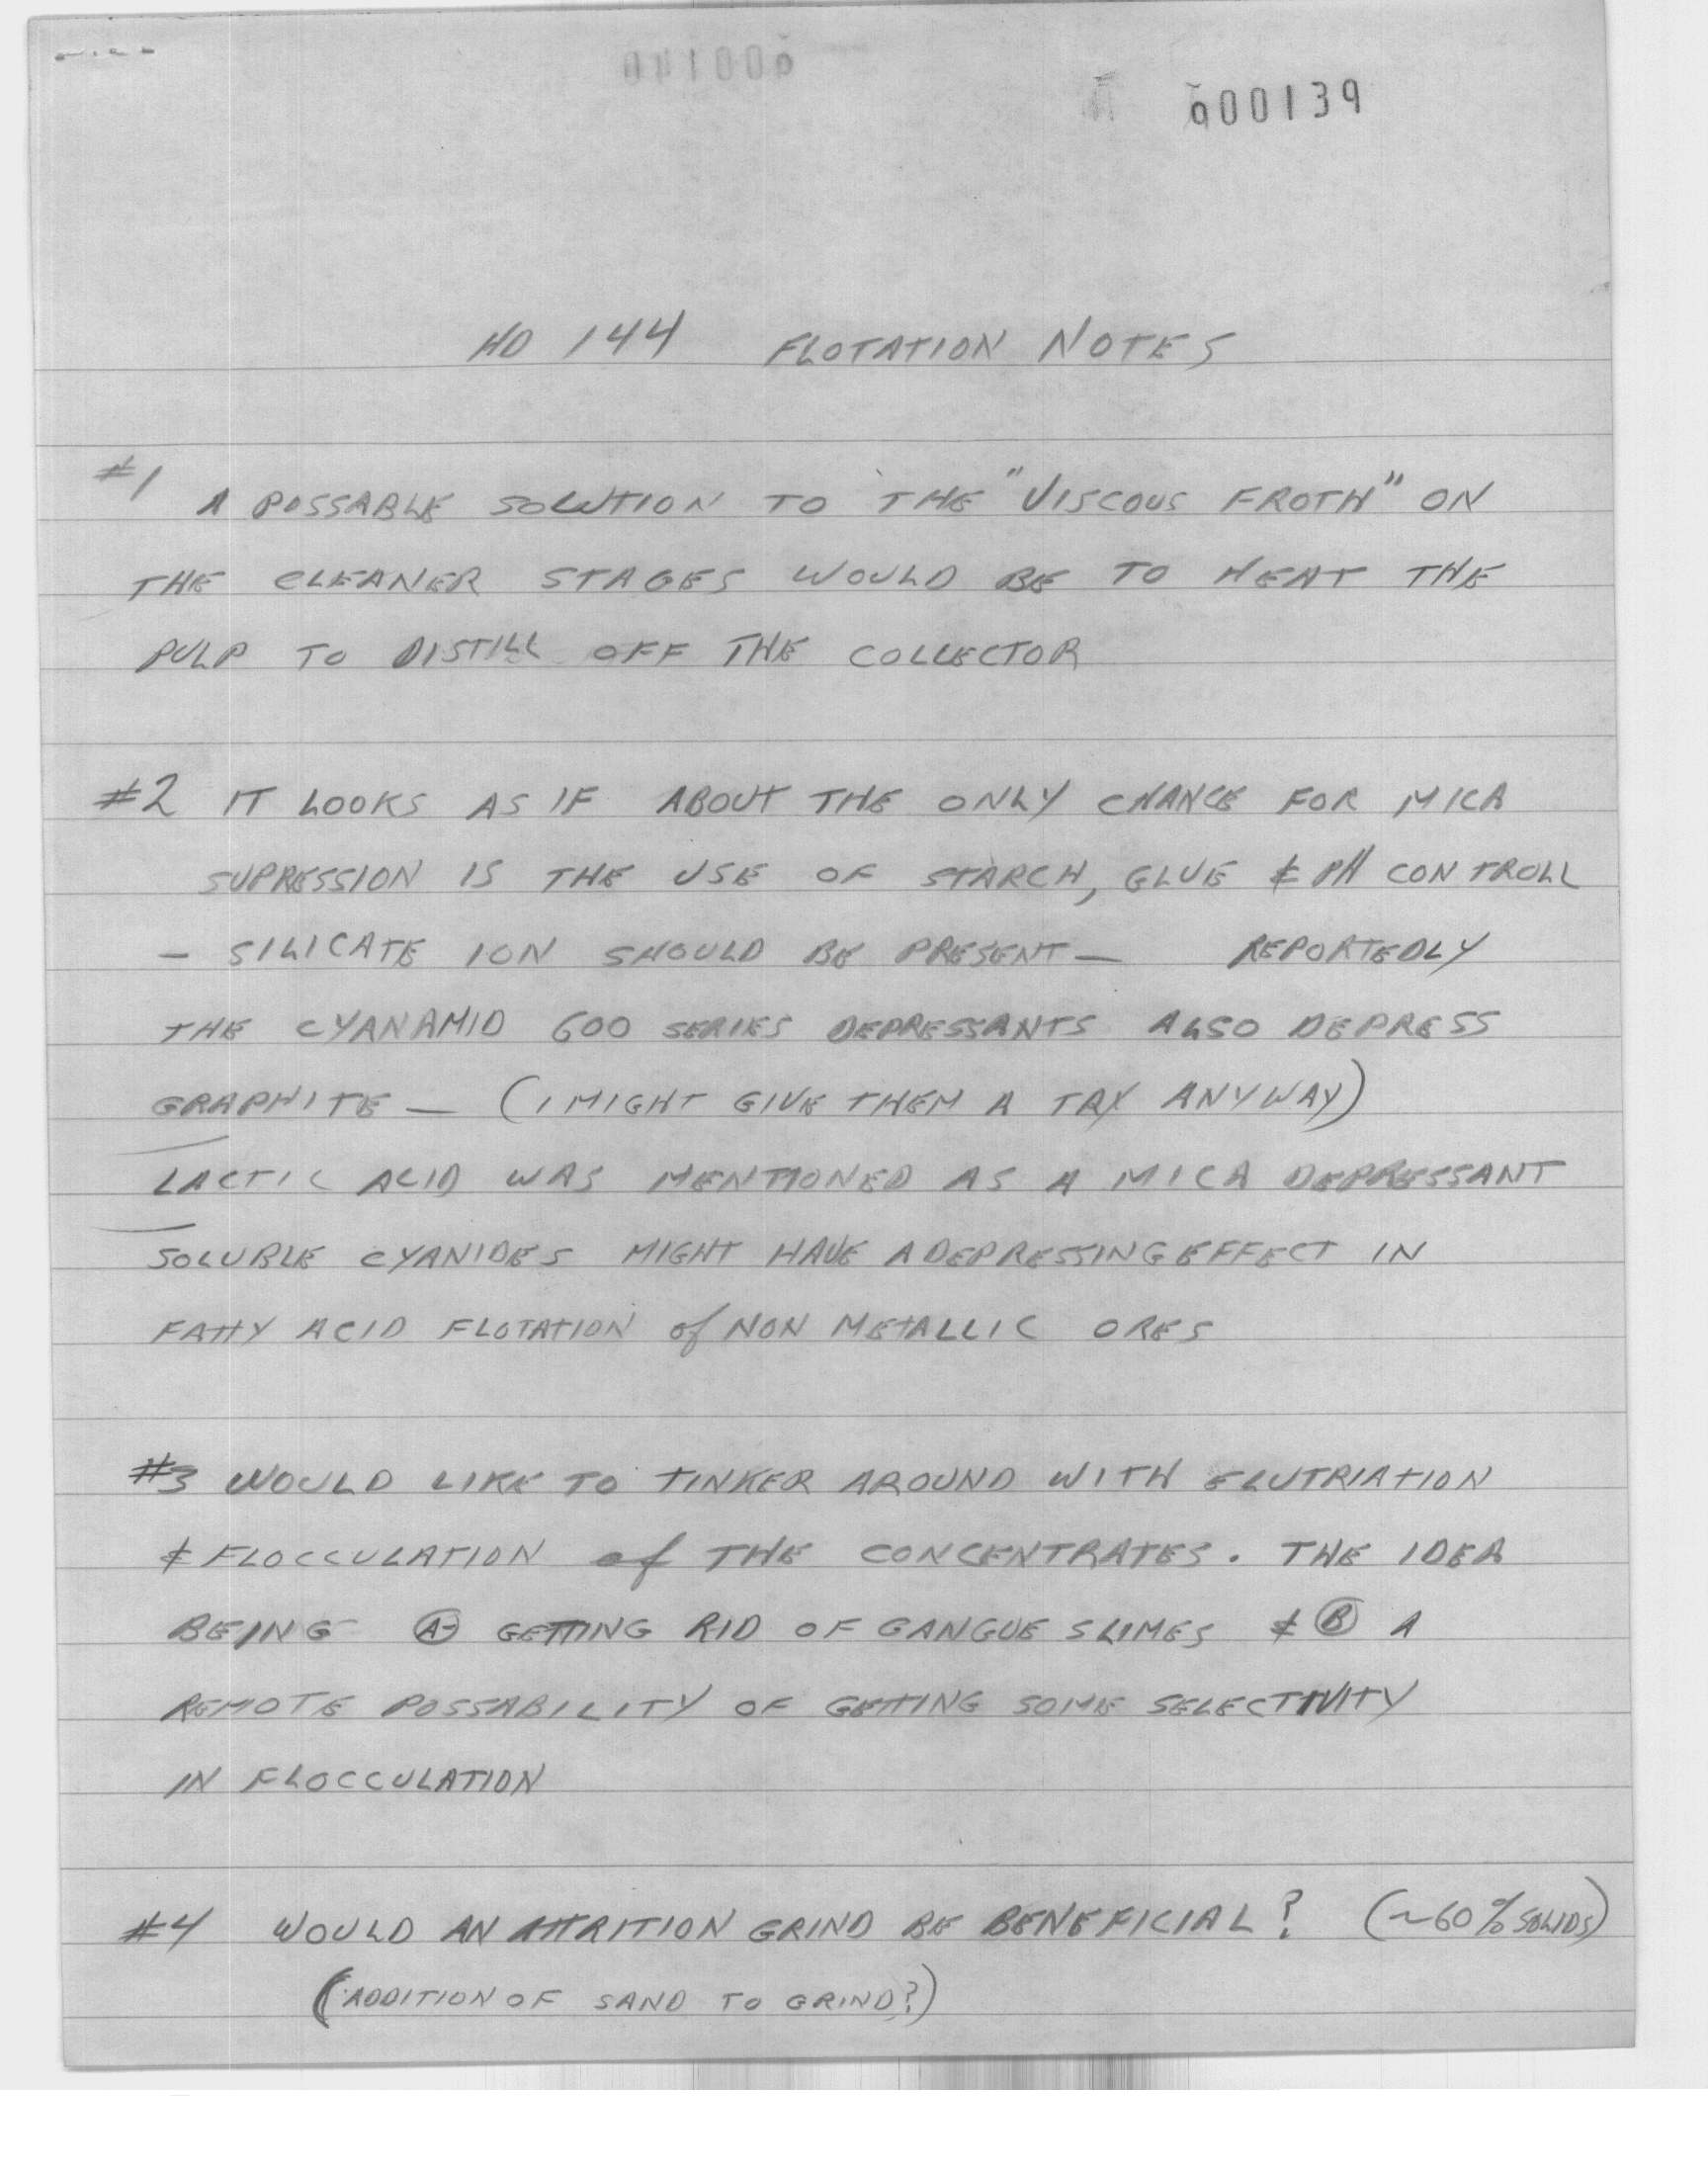 000139
HO 144 FLOTATION NOTES
#1 A POSSABLE SOLUTION TO THE "VISCOUS FROTH" ON
THE CLEANER STAGES WOULD BE TO HEAT THE
PULP TO DISTILL OFF THE COLLECTOR
#2 IT LOOKS AS IF ABOUT THE ONLY CHANCE FOR MICA
SUPRESSION IS THE USE OF STARCH, GLUE & PH CONTROLL
— SILICATE ION SHOULD BE PRESENT — REPORTEDLY
THE CYANAMID 600 SERIES DEPRESSANTS ALSO DEPRESS
GRAPHITE — (I MIGHT GIVE THEM A TRY ANYWAY)
LACTIC ACID WAS MENTIONED AS A MICA DEPRESSANT
SOLUBLE CYANIDES MIGHT HAVE A DEPRESSING EFFECT IN
FATTY ACID FLOTATION of NON METALLIC ORES
#3 WOULD LIKE TO TINKER AROUND WITH ELUTRIATION
& FLOCCULATION of THE CONCENTRATES. THE IDEA
BEING A- GETTING RID OF GANGUE SLIMES & B A
REMOTE POSSABILITY OF GETTING SOME SELECTIVITY
IN FLOCCULATION
#4 WOULD AN ATTRITION GRIND BE BENEFICIAL? (~60% SOLIDS)
(ADDITION OF SAND TO GRIND?)